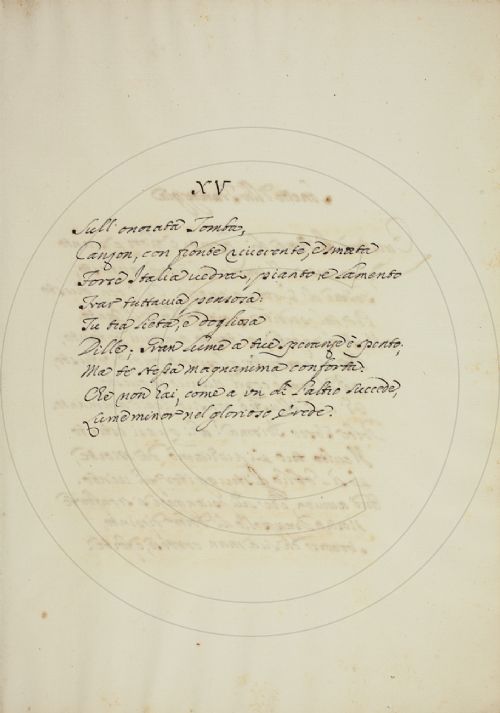 XV
Sull'onorata Tomba,
Canzon, con fronte riuerente, e smorta
Forse Italia uedrai pianto, e lamento
Trar tuttauia pensosa.
Tu tra lieta, e dogliosa
Dille: Gran lume a tue speranze è spento;
Ma te stessa magnanima conforta.
Che non hai, come a un dì l'altro succede,
Lume minor nel glorioso Erede.